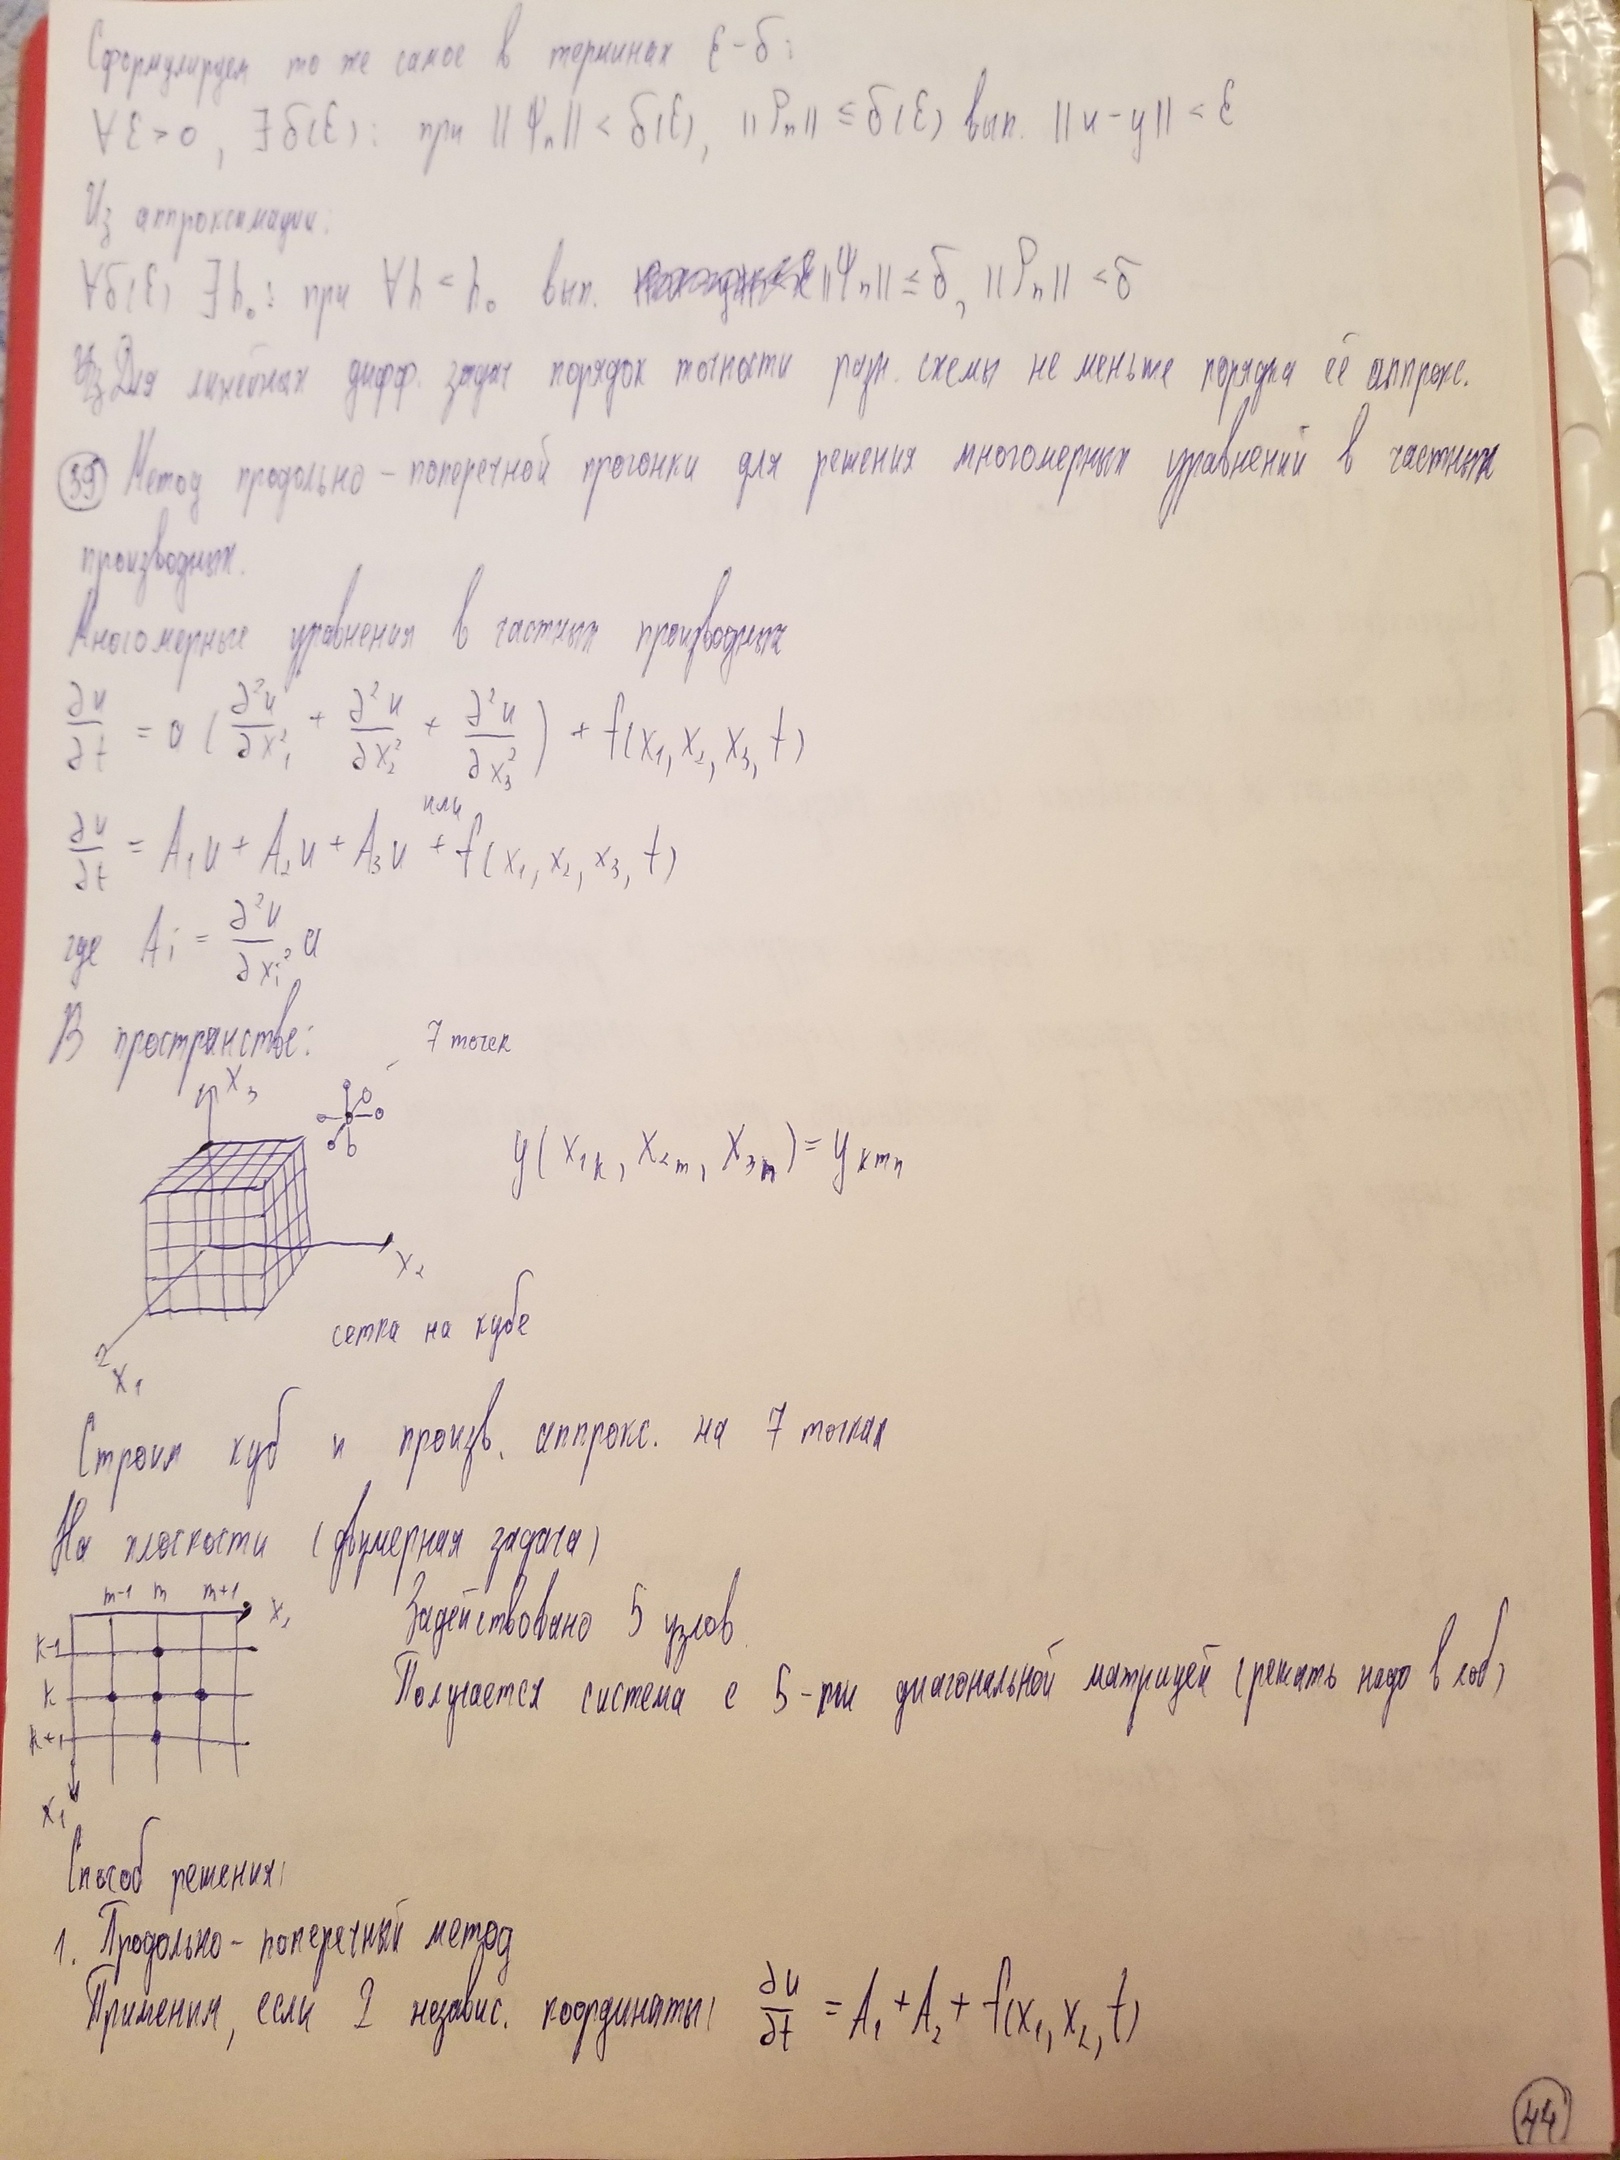 Сформулируем то же самое в терминах ε-δ:
∀ε>0, ∃δ(ε): при ||Ψₙ|| < δ(ε), ||ρₙ|| ≤ δ(ε) вып. ||u-y|| < ε
Из аппроксимации:
∀δ(ε) ∃h₀: при ∀h<h₀ вып. ||Ψₙ|| ≤ δ, ||ρₙ|| < δ
Для линейных дифф. задач порядок точности разн. схемы не меньше порядка её аппрокс.
39 Метод продольно-поперечной прогонки для решения многомерных уравнений в частных
производных.
Многомерные уравнения в частных производных
∂u/∂t = a(∂²u/∂x₁² + ∂²u/∂x₂² + ∂²u/∂x₃²) + f(x₁, x₂, x₃, t)
или
∂u/∂t = A₁u + A₂u + A₃u + f(x₁, x₂, x₃, t)
где Ai = ∂²u/∂xi² a
В пространстве:
7 точек
x₃
y(x₁ₖ, x₂ₘ, x₃ₙ) = yₖₘₙ
x₂
сетка на кубе
x₁
Строим куб и произв. аппрокс. на 7 точках
На плоскости (двумерная задача)
m-1 m m+1 x₂
k-1
k
k+1
x₁
Задействовано 5 узлов
Получается система с 5-ти диагональной матрицей (решать надо в лоб)
Способ решения:
1. Продольно-поперечный метод
Применим, если 2 независ. координаты: ∂u/∂t = A₁ + A₂ + f(x₁, x₂, t)
44